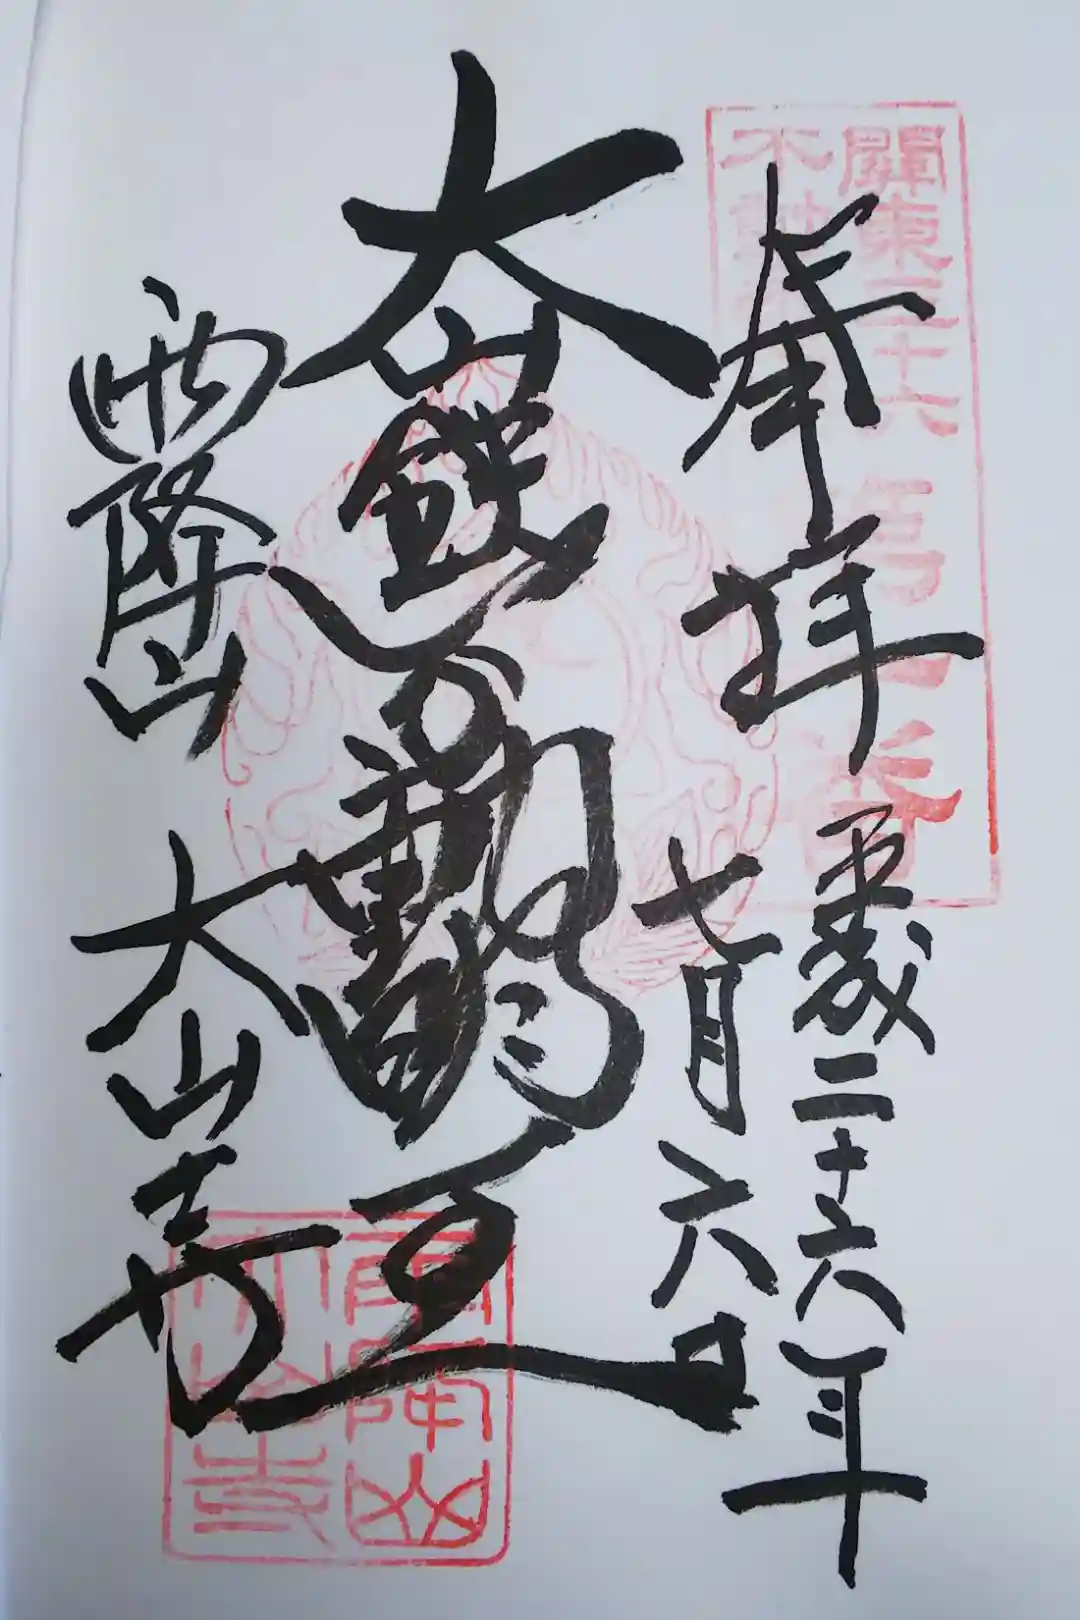 關東三十六
不動
奉拝
平成二十六年
七月六日
大山鐵不動
雨降山
大山寺
雨降山
大山寺